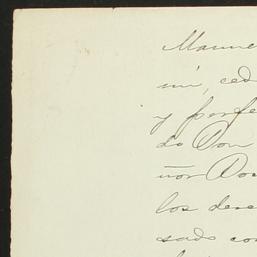 Manue
mi, ced
y perfe
do Don
ñor Do
los dere
sado co